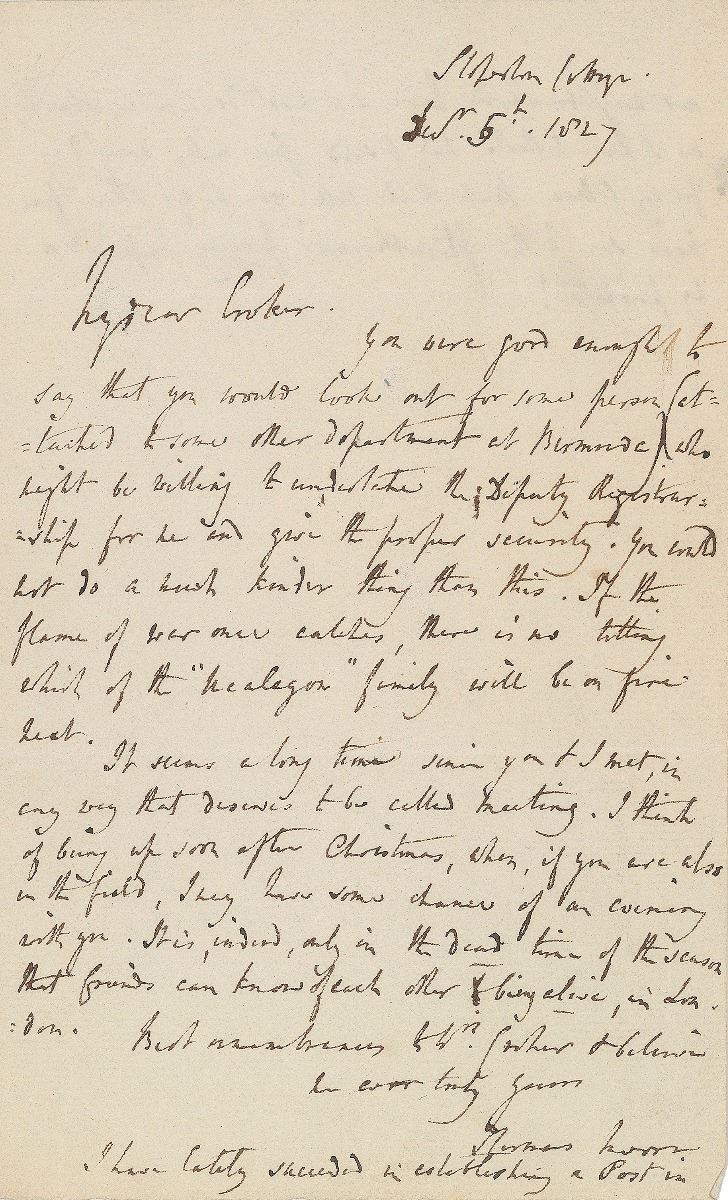 Sloperton Cottage.
Decr. 5th. 1827
My dear Croker.
You were good enough to
say that you would look out for some person (at=
=tached to some other department at Bermuda) who
might be willing to undertake the Deputy Registrar=
=ship for me and give the proper security. You could
not do a much kinder thing than this. If the
flame of war once catches, there is no telling
which of the "Ucalegon" family will be on fire
next.
It seems a long time since you & I met, in
any way that deserves to be called meeting. I think
of being up soon after Christmas, when, if you are also
in the field, I may have some chance of an evening
with you. It is, indeed, only in the dead time of the season
that friends can know of each other being alive, in Lon=
=don. Best remembrances to Mrs. Croker & believe
me ever truly yours
Thomas Moore
I have lately succeeded in establishing a Post in